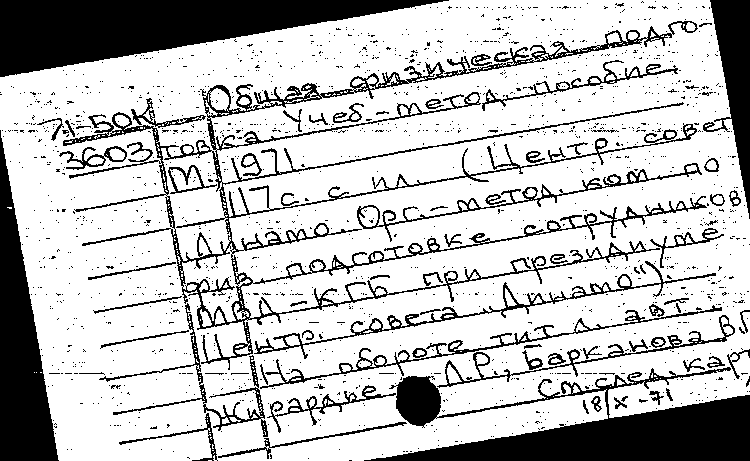 Общая физическая подго-
71-50К товка. Учеб.-метод. пособие.
3603 М., 1971.
117 с. с ил. (Центр. совет
"Динамо. Орг.-метод. ком. по
физ. подготовке сотрудников
МВД-КГБ при президиуме
Центр. совета "Динамо").
На обороте тит. л. авт.:
Жирардье Л.Р., Барканова В.Г.
См. след. карт.
18/X-71